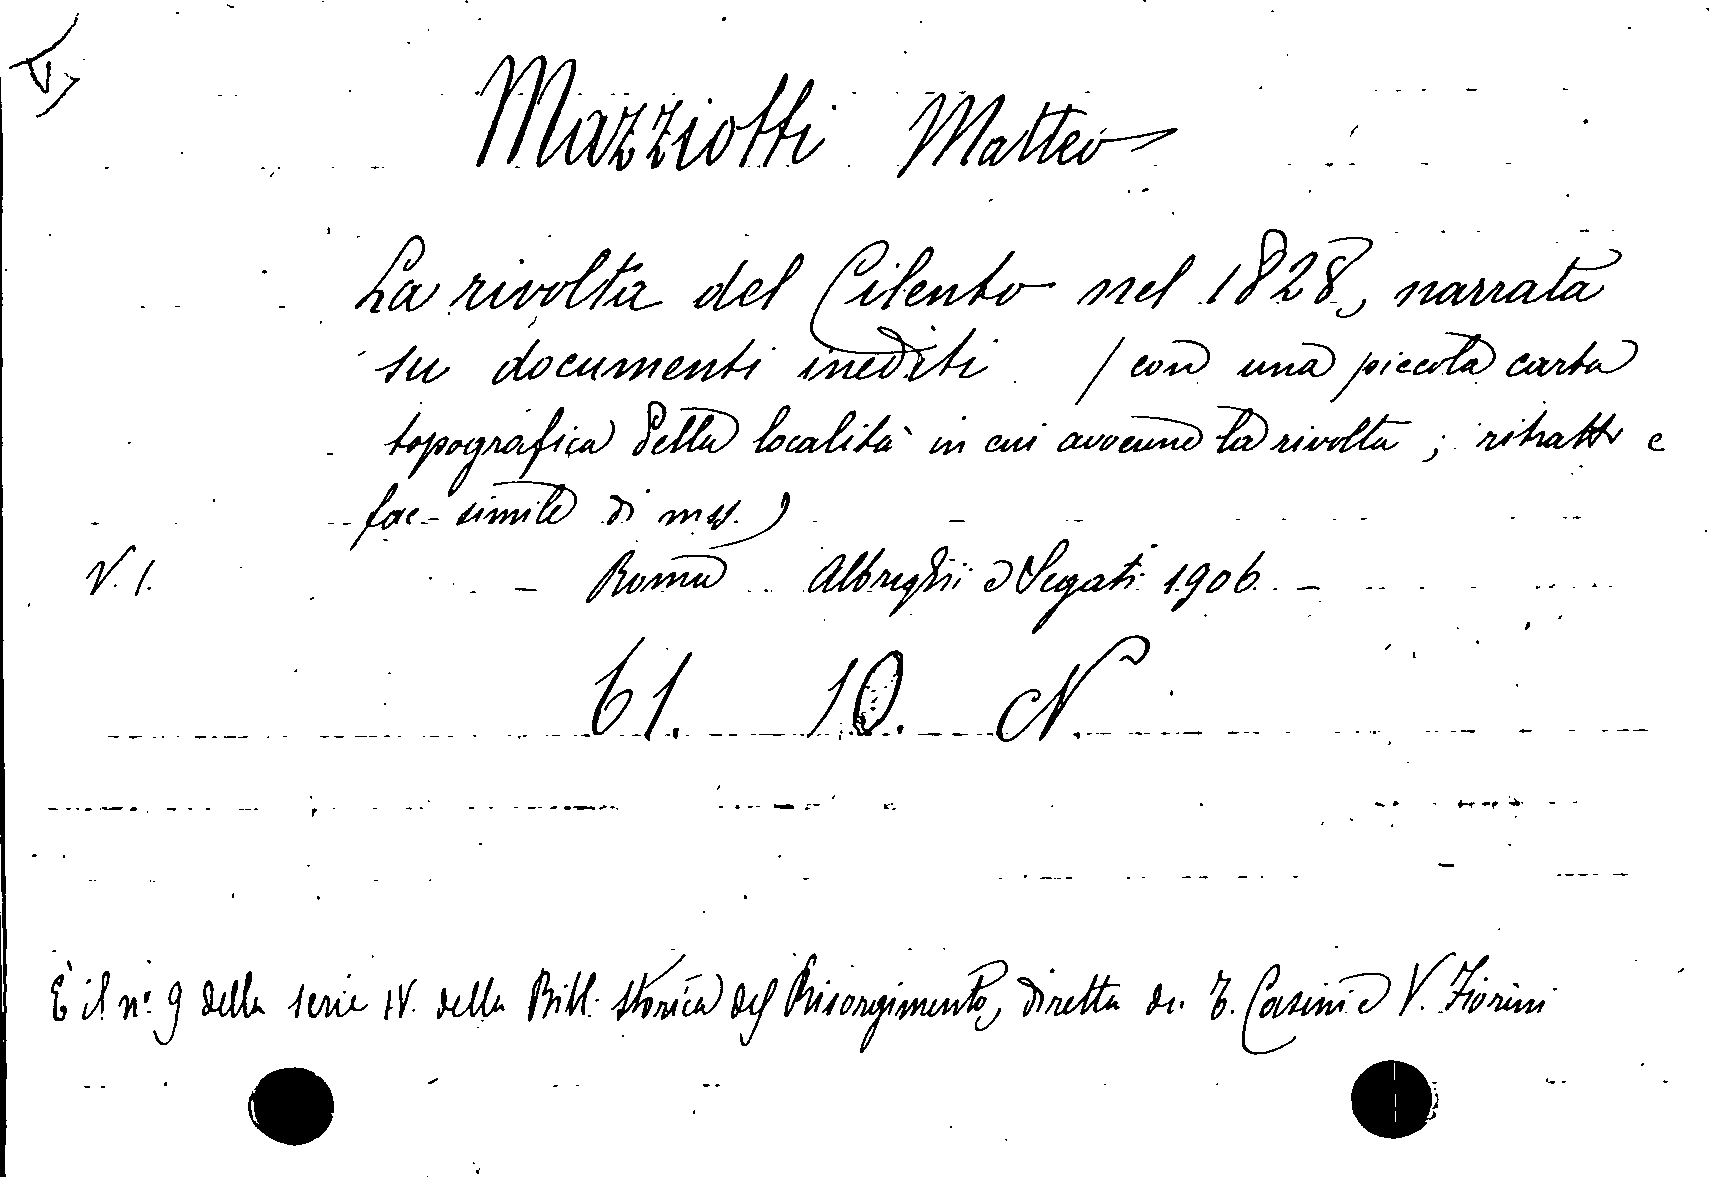 Mazziotti Matteo
La rivolta del Cilento nel 1828, narrata
su documenti inediti (con una piccola carta
topografica della località in cui avvenne la rivolta; ritratti e
fac-simile di mss.)
V. 1.
Roma Albrighi e Segati 1906
61. 10. N.
È il n.º 9 della serie IV. della Bibl. storica del Risorgimento, diretta da T. Casini e V. Fiorini